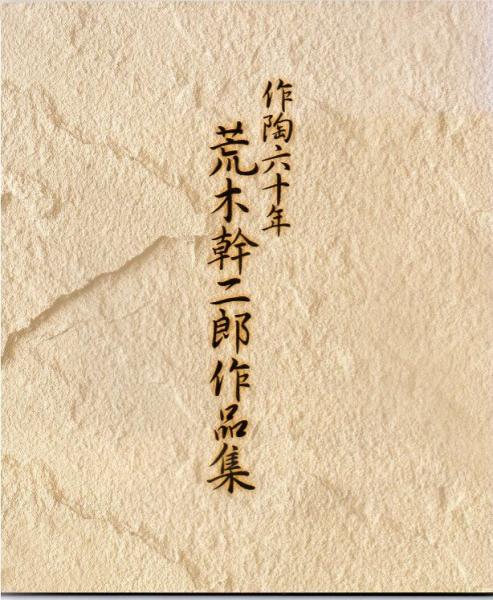 作陶六十年
荒木幹二郎作品集